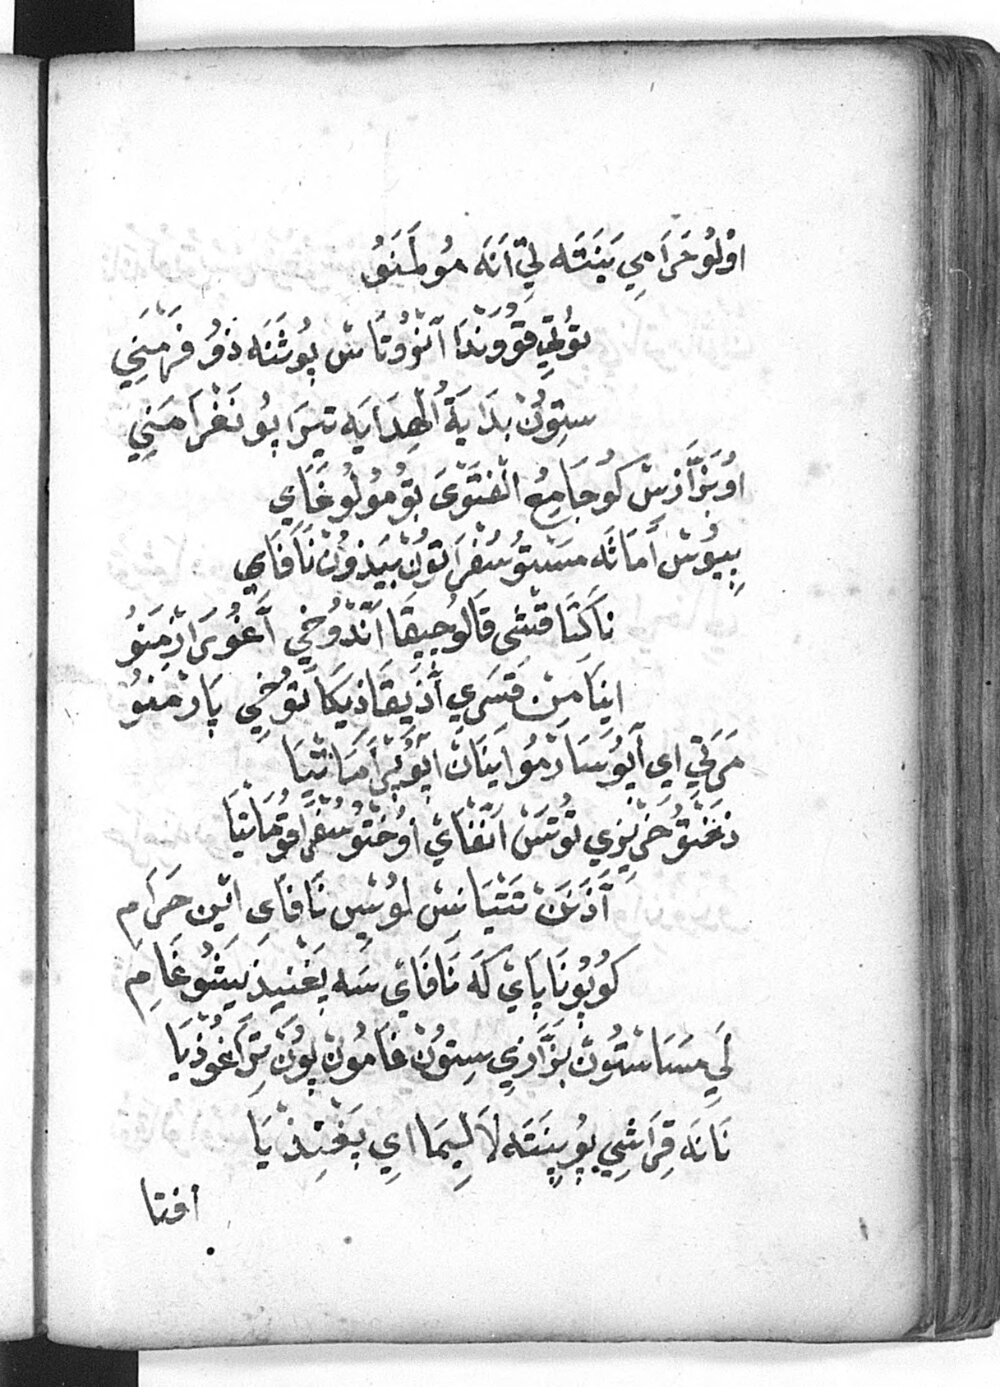 اوُلوُ حَرَامِي يَنَتَه لِيّ اَنَه مُولَمَنوُ
تُولِيّ قوُرَنْدَا آنْوُتَاسْ بوُشَنَه ذوُ فَهْمَنِي
سِتوُنْ بِدَايَةُ الْهِدَايَه تِيرَا بوُ نَغْرَامَنِي
اوُبَرَّازِسْ كوُ جَامِعُ الْفَتْوَى بوُمُولوُغَايِ
بِيوُسْ آمَاتَه مِسْتوُسُفْرَاتوُنْ بَيْذوُنْ نَافَايِ
نَاكَتَا قَتْسِي قَالوُجِيقَا اَنْدوُخِي آغوُرَاذِمَنوُ
اينَا مَنْ قَتَسَرِي آذِيقَاذِيكَا تَوُخِي پَاذِمَنوُ
مَرَقِي اي آبوُسَاذِمُو اينَانْ ابوُبْرَامَاتْيَا
ذَخْتوُخَرِيزِي توُتَسْ اَتَفَايْ اوُخْتوُسُفْرَاقوُمَاتْيَا
آذَنَنْ تَتْيَانِسْ لوُيِسْ نَافَايْ اتِنْ حَرَامِ
كوُبوُنَا پَايْ كَه نَافَايْ سَه يَغْنِيذِيَسَوُغَامِ
لَيِ مَسَاسْتوُنْ بَزَّارِي سِتوُنْ غَامُونْ پوُنْ تِرَاغوُذْيَا
نَانَه قِرَاشِي بوُپِنَتَه لَالِيمَا ايِ پَغْنِذْيَا
افتا